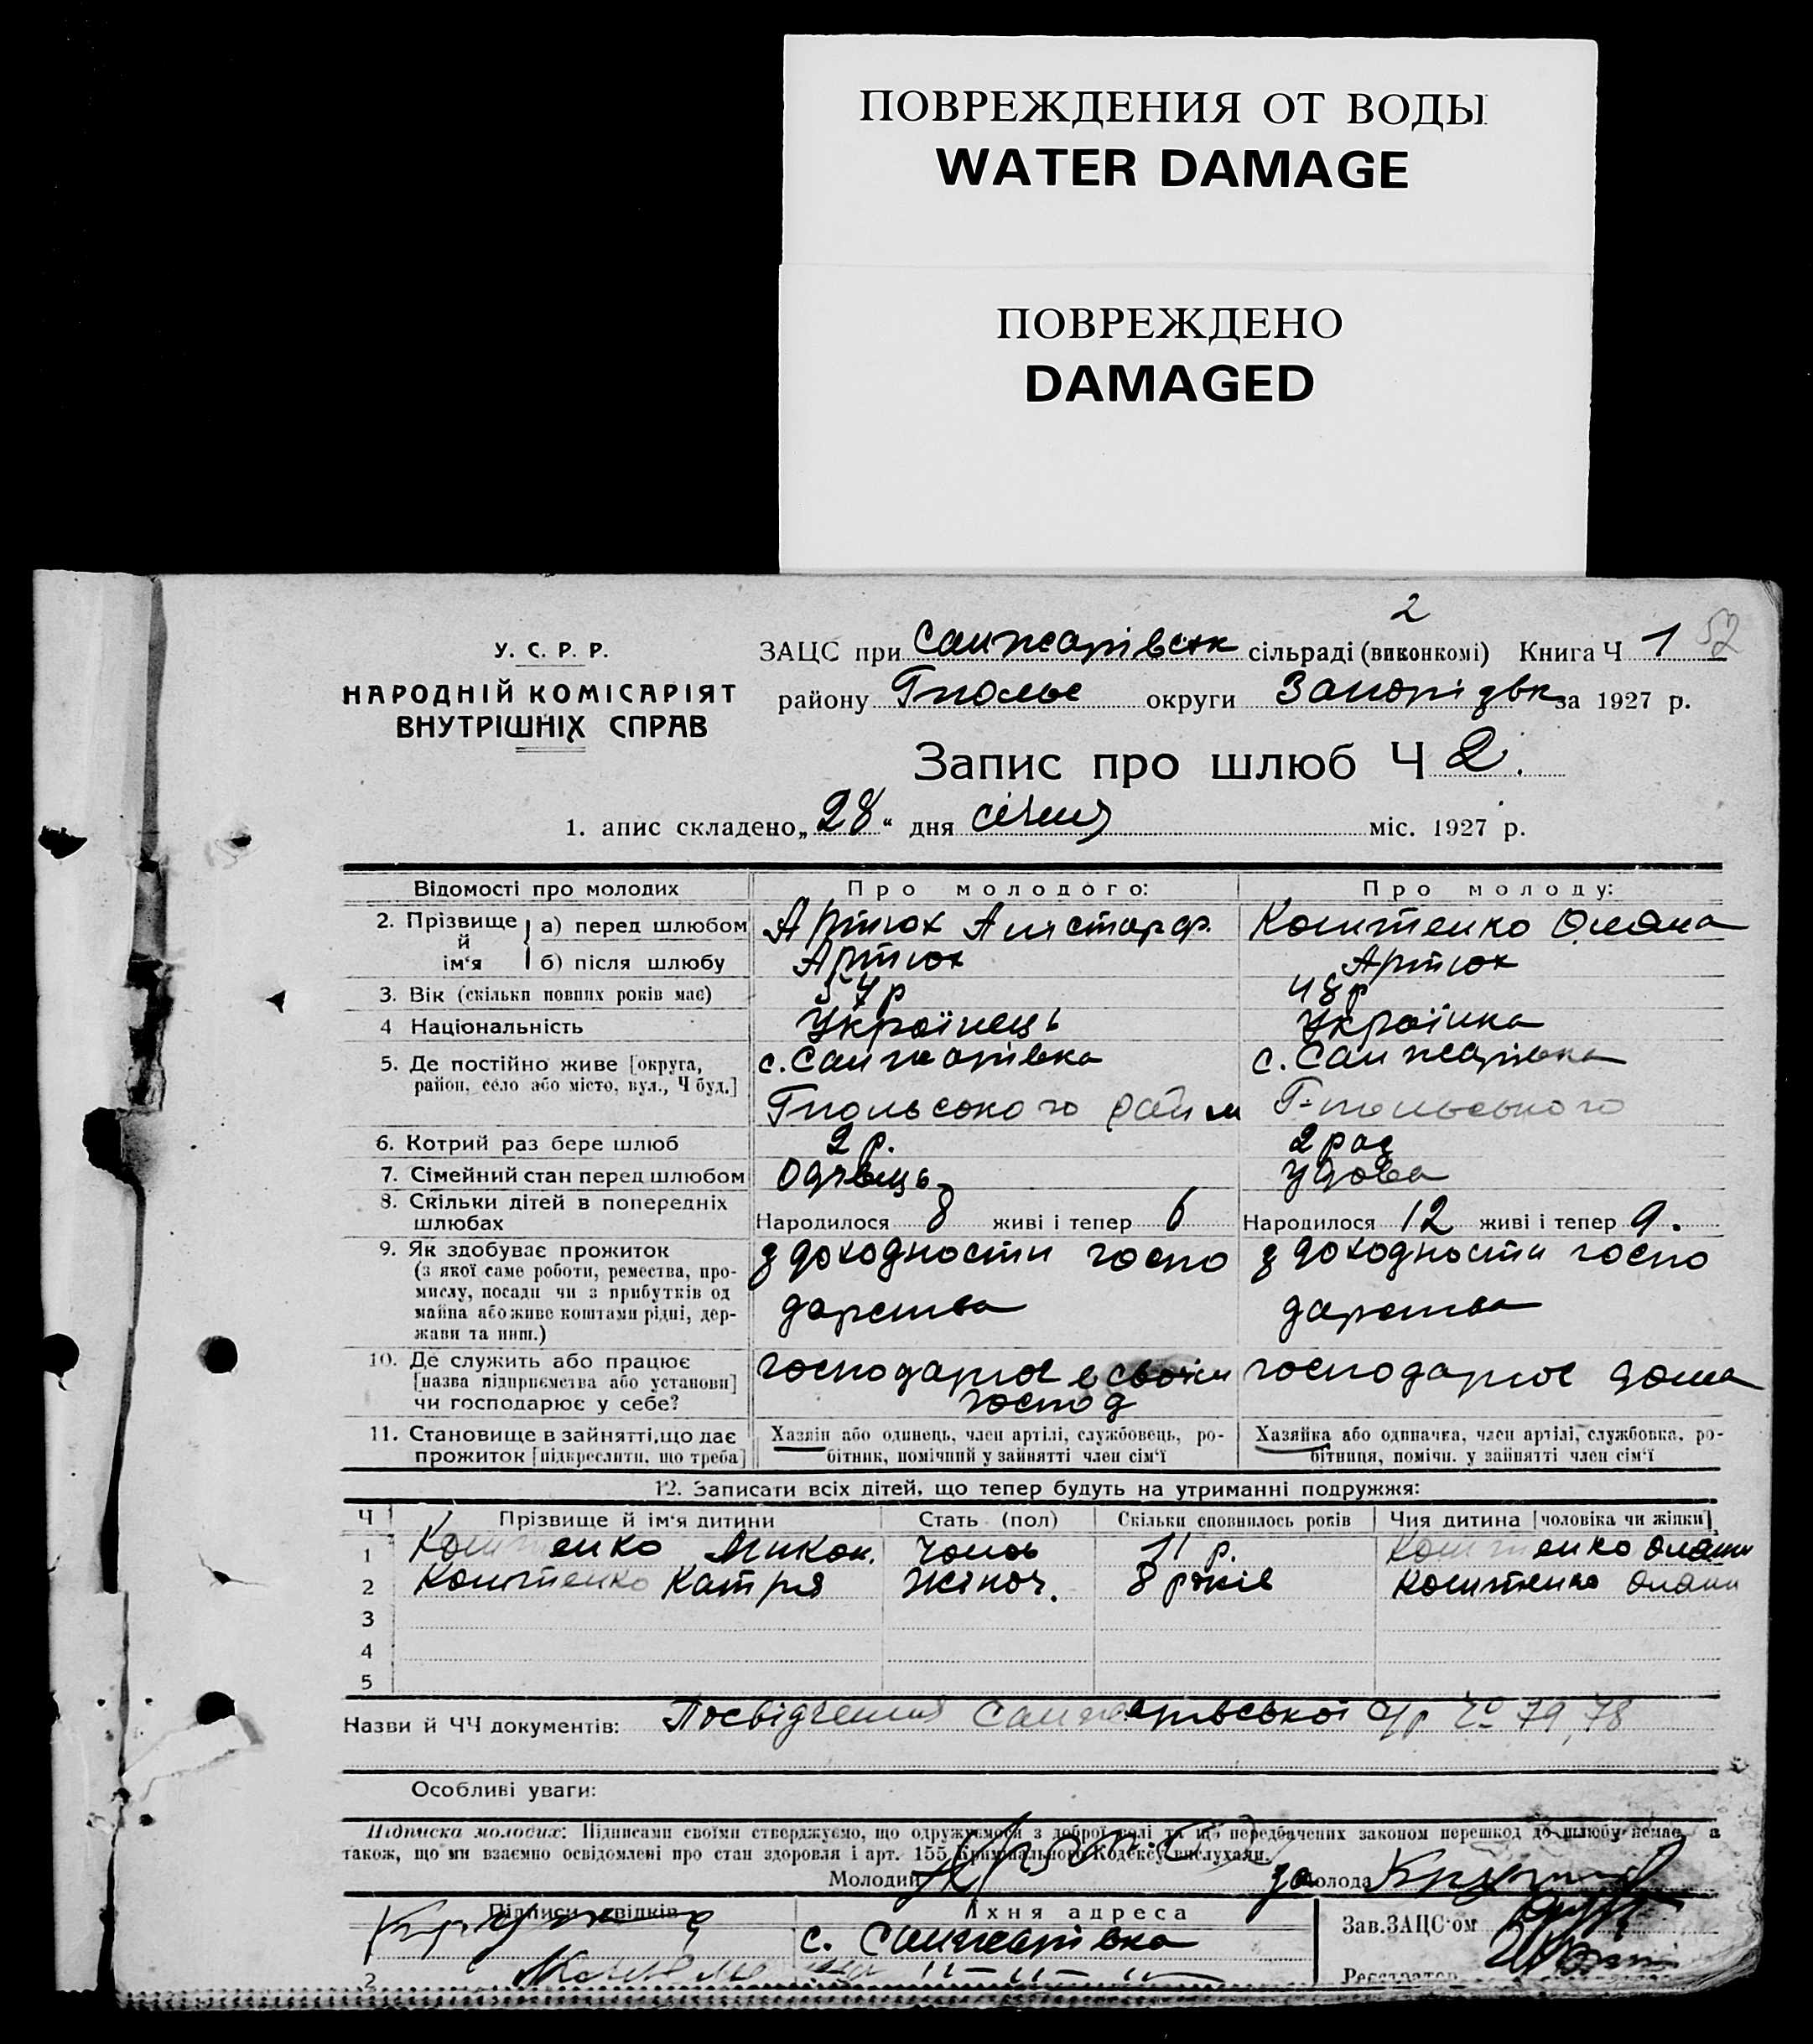 ПОВРЕЖДЕНИЯ ОТ ВОДЫ
WATER DAMAGE
ПОВРЕЖДЕНО
DAMAGED
2
У. С. Р. Р.
НАРОДНІЙ КОМІСАРІЯТ
ВНУТРІШНІХ СПРАВ
ЗАЦС при Санжарівськ сільраді (виконкомі) Книга Ч 1 52
району Гпольс округи Запорізьк за 1927 р.
Запис про шлюб Ч 2.
1. апис складено „28“ дня січня міс. 1927 р.
Відомості про молодих Про молодого: Про молоду:
2. Прізвище й ім‘я а) перед шлюбом Артюх Коштенко Оляна
б) після шлюбу Артюх Артюх
3. Вік (скільки повних років має) 54 р 48 р
4 Національність Українець Українка
5. Де постійно живе [округа, район, село або місто, вул., Ч буд.] с. Санжарівка с. Санжарівка
Гпольського район Г-польського
6. Котрий раз бере шлюб 2 р. 2 раз
7. Сімейний стан перед шлюбом Удова
8. Скільки дітей в попередніх шлюбах Народилося 8 живі і тепер 6 Народилося 12 живі і тепер 9.
9. Як здобуває прожиток (з якої саме роботи, ремества, промислу, посади чи з прибутків од майна або живе коштами рідні, держави та инш.) з доходности госпо з доходности госпо
дарства дарства
10. Де служить або працює [назва підприємства або установи] чи господарює у себе? господарює в своїм господ господарює дома
11. Становище в зайнятті, що дає прожиток [підкреслити, що треба] Хазяїн або одинець, член артілі, службовець, ро- Хазяйка або одиначка, член артілі, службовка, ро-
бітник, помічний у зайнятті член сім‘ї бітниця, помічн. у зайнятті член сім‘ї
12. Записати всіх дітей, що тепер будуть на утриманні подружжя:
Ч Прізвище й ім‘я дитини Стать (пол) Скільки сповнилось років Чия дитина [чоловіка чи жінки]
1 Коштенко Микол. чолов 11 р. Коштенко Оляни
2 Коштенко Катря жіноч. 8 років Коштенко Оляни
3
4
5
Назви й ЧЧ документів: Посвідчення Санжарівської с/р № 79, 78
Особливі уваги:
Підписка молодих: Підписами своїми стверджуємо, що одружуємося з доброї волі та що передбачених законом перешкод до шлюбу немає, а
також, що ми взаємно освідомлені про стан здоровля і арт. 155 Кримінального Кодексу вислухали.
Молодий за Молода
Підписи свідків Їхня адреса Зав. ЗАЦС‘ом
с. Санжарівка
2 "-"-" Реєстратор